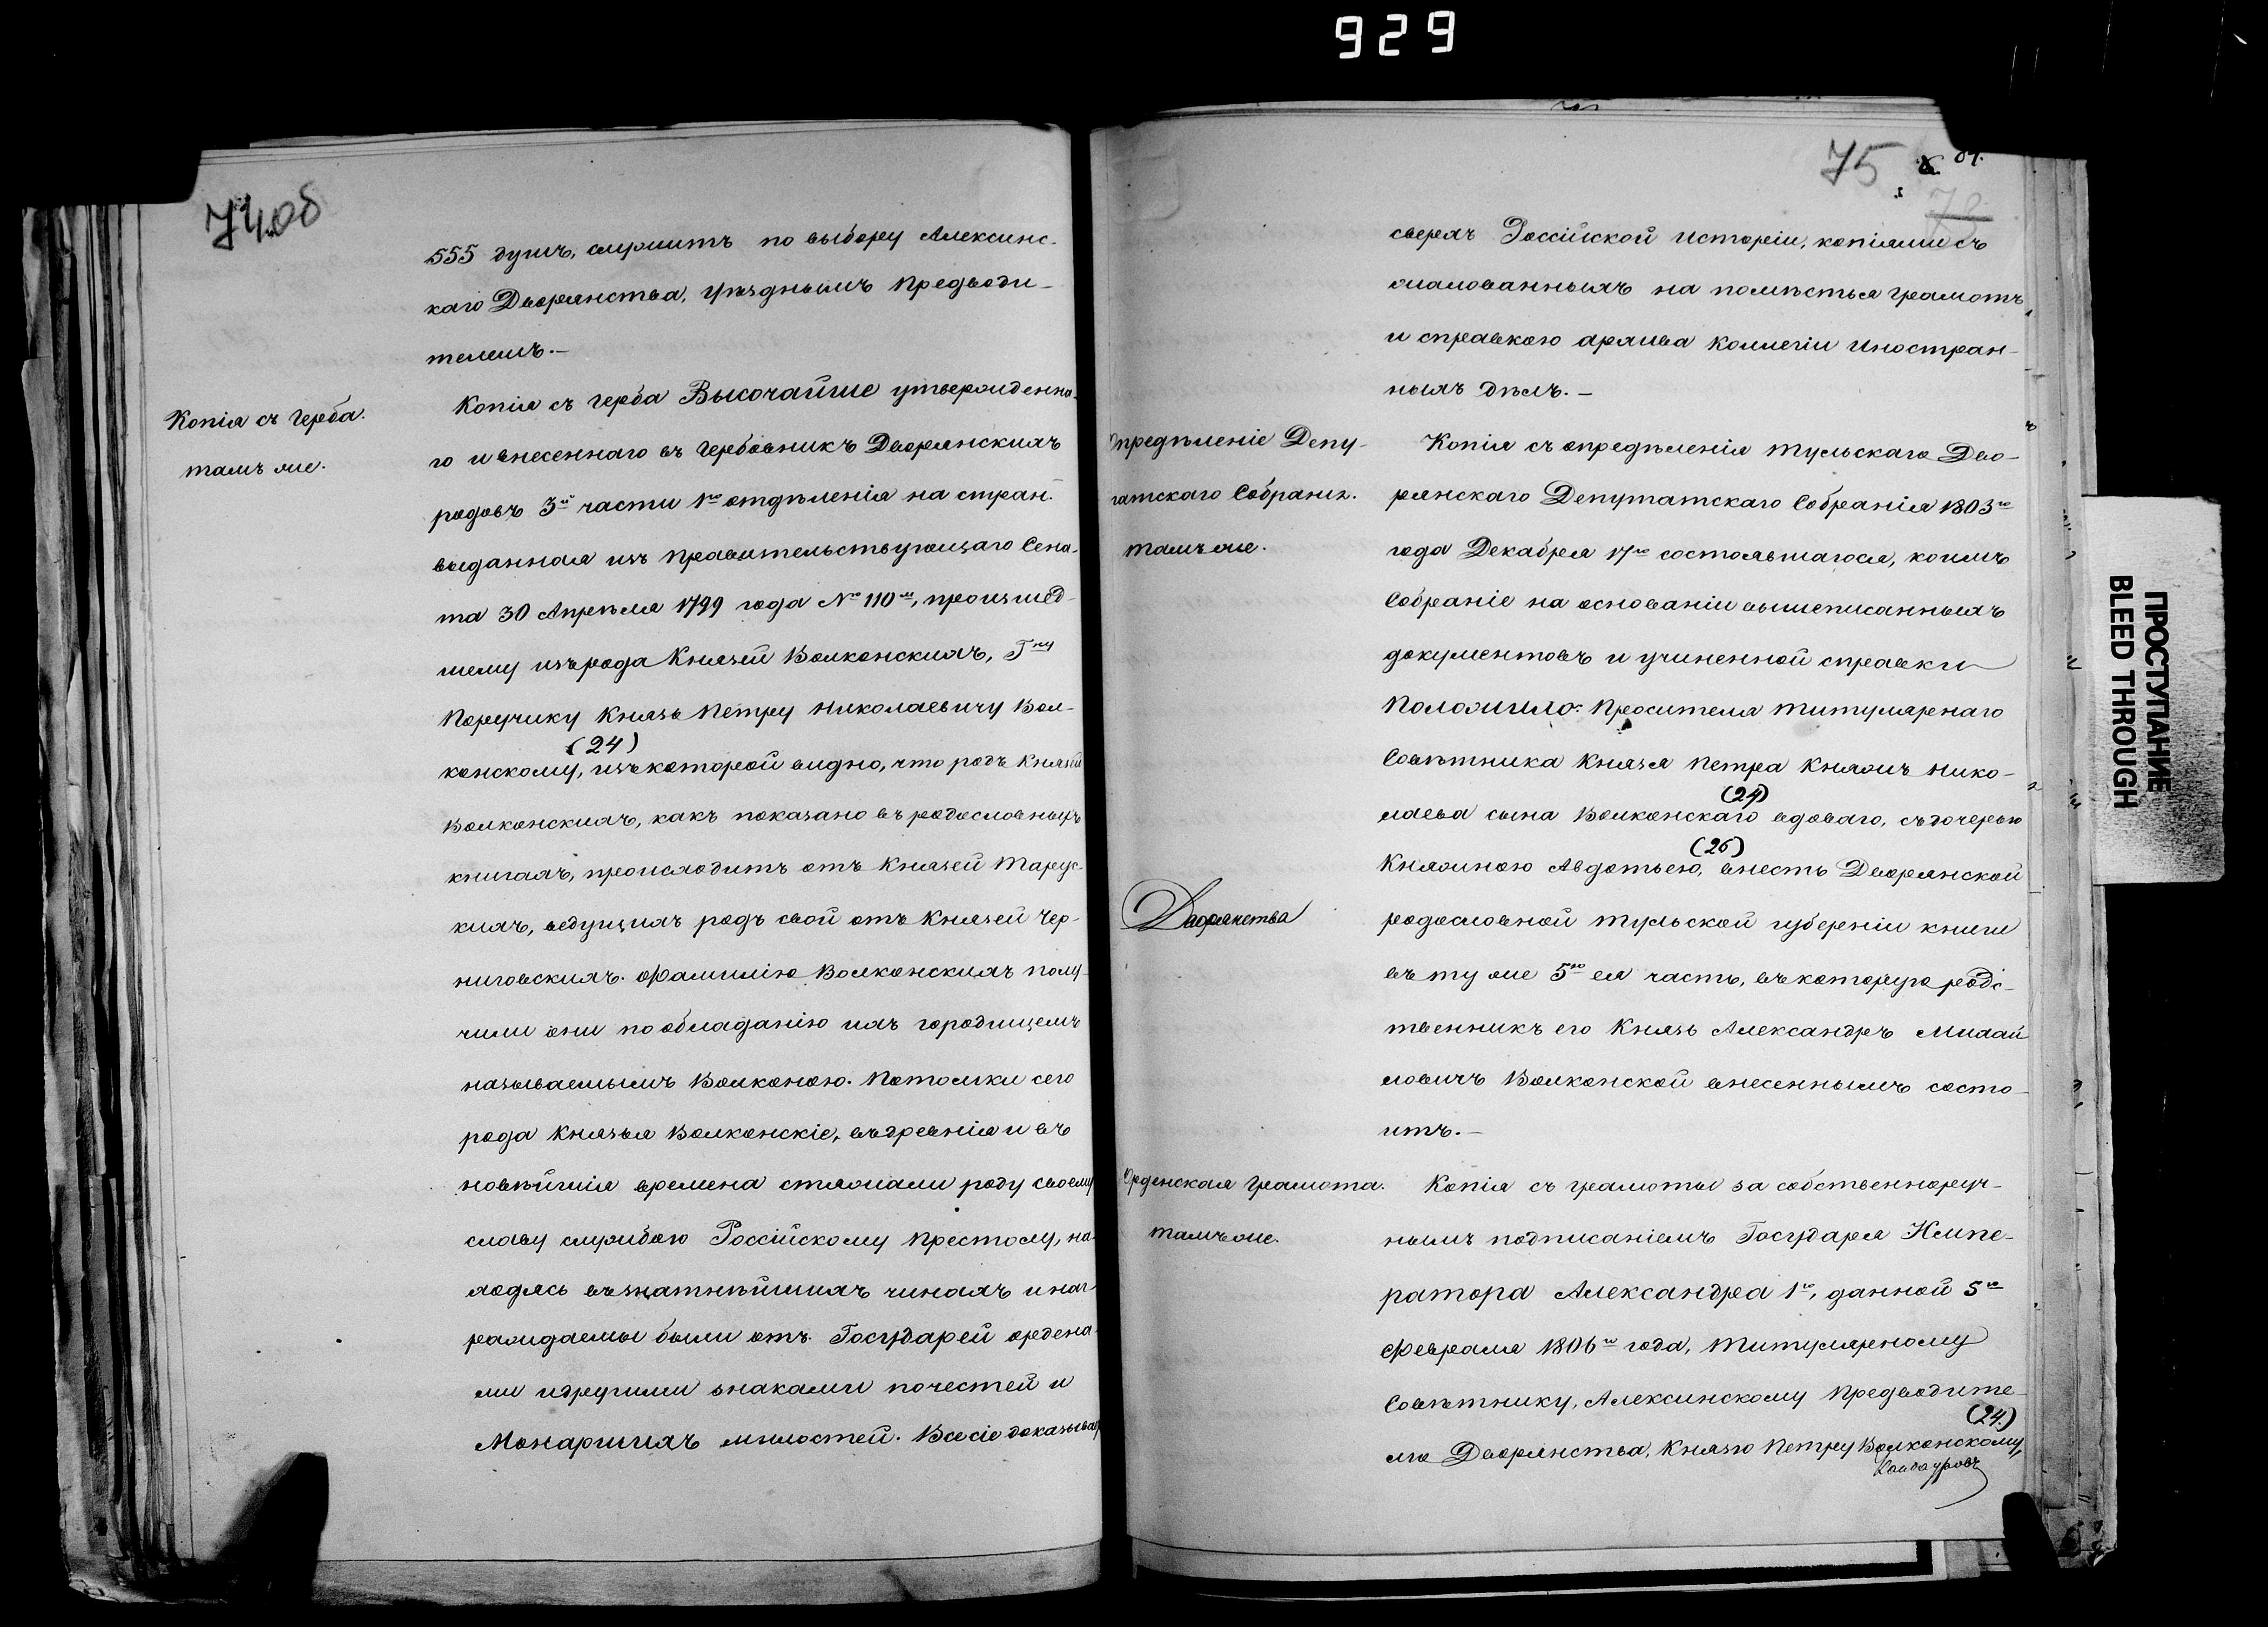 929
74об
555 душъ, служитъ по выбору Алексинс-
каго Дворянства, уѣзднымъ предводи-
телемъ.—
Копія съ герба.
тамъ же.
Копія съ герба Высочайше утвержденна-
го и внесеннаго въ гербовникъ Дворянскихъ
родовъ 3й части 1го отдѣленія на стран.
выданная изъ Правительствующаго Сена-
та 30 Апрѣля 1799 года № 110м, происшед-
шему изъ рода Князей Волконскихъ, Гну
Поручику Князь Петру Николаевичу Вол-
(24)
конскому, изъ которой видно, что родъ Князей
Волконскихъ, какъ показано въ родословныхъ
книгахъ, происходитъ отъ Князей Тарус-
кихъ, ведущихъ родъ свой отъ Князей Чер-
ниговскихъ. Фамилію Волконскихъ полу-
чили они по обладанію ихъ городищемъ
называемымъ Волконою. Потомки сего
рода Князья Волконскіе, въ древнія и въ
новѣйшія времена стяжали роду своему
славу службою Россійскому престолу, на-
ходясь въ знатнѣйшихъ чинахъ и наг-
раждаемы были отъ Государей ордена-
ми и другими знаками почестей и
Монаршихъ милостей. Все сіе доказывае
75
72
сверхъ Россійской исторіи, копіями съ
жалованныхъ на помѣстья грамотъ
и справкою архива коллегіи иностран-
ныхъ дѣлъ.—
Опредѣленіе Депу-
татскаго Собранія.
тамъ же.
Копія съ опредѣленія Тульскаго Дво-
рянскаго Депутатскаго Собранія 1803го
года Декабря 17го состоявшагося, коимъ
Собраніе на основаніи вышеписанныхъ
документовъ и учиненной справки
Положило: Просителя титулярнаго
Совѣтника Князя Петра Княжъ Нико-
(24)
лаева сына Волконскаго вдоваго, съ дочерью
(26)
Княжною Авдотьею, внесть Дворянской
Дворянства
родословной Тульской губерніи книги
въ ту же 5ю ея часть, въ которую родс-
твенникъ его Князь Александръ Михай
ловичъ Волконской внесеннымъ состо-
итъ.—
Орденская грамота.
тамъ же.
Копія съ грамоты за собственноруч-
нымъ подписаніемъ Государя Импе-
ратора Александра 1го, данной 5го
Февраля 1806го года, Титулярному
Совѣтнику, Алексинскому Предводите-
(24.)
лю Дворянства, Князю Петру Волконскому,
ПРОСТУПАНИЕ
BLEED THROUGH